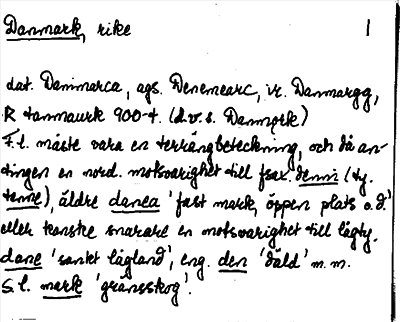 Danmark, rike 1
dat. Danimarca, ags. Denemearc, ir. Danmargg,
R tanmaurk 900-t. (d.v.s. Danmǫrk)
F.l. måste vara en terrängbeteckning, och då an-
tingen en nord. motsvarighet till fsax. denni (ty.
tenne), äldre danea 'fast mark, öppen plats o.d.'
eller kanske snarare en motsvarighet till lågty.
dane 'sankt lågland', eng. den 'däld' m.m.
S.l. mark 'gränsskog'.